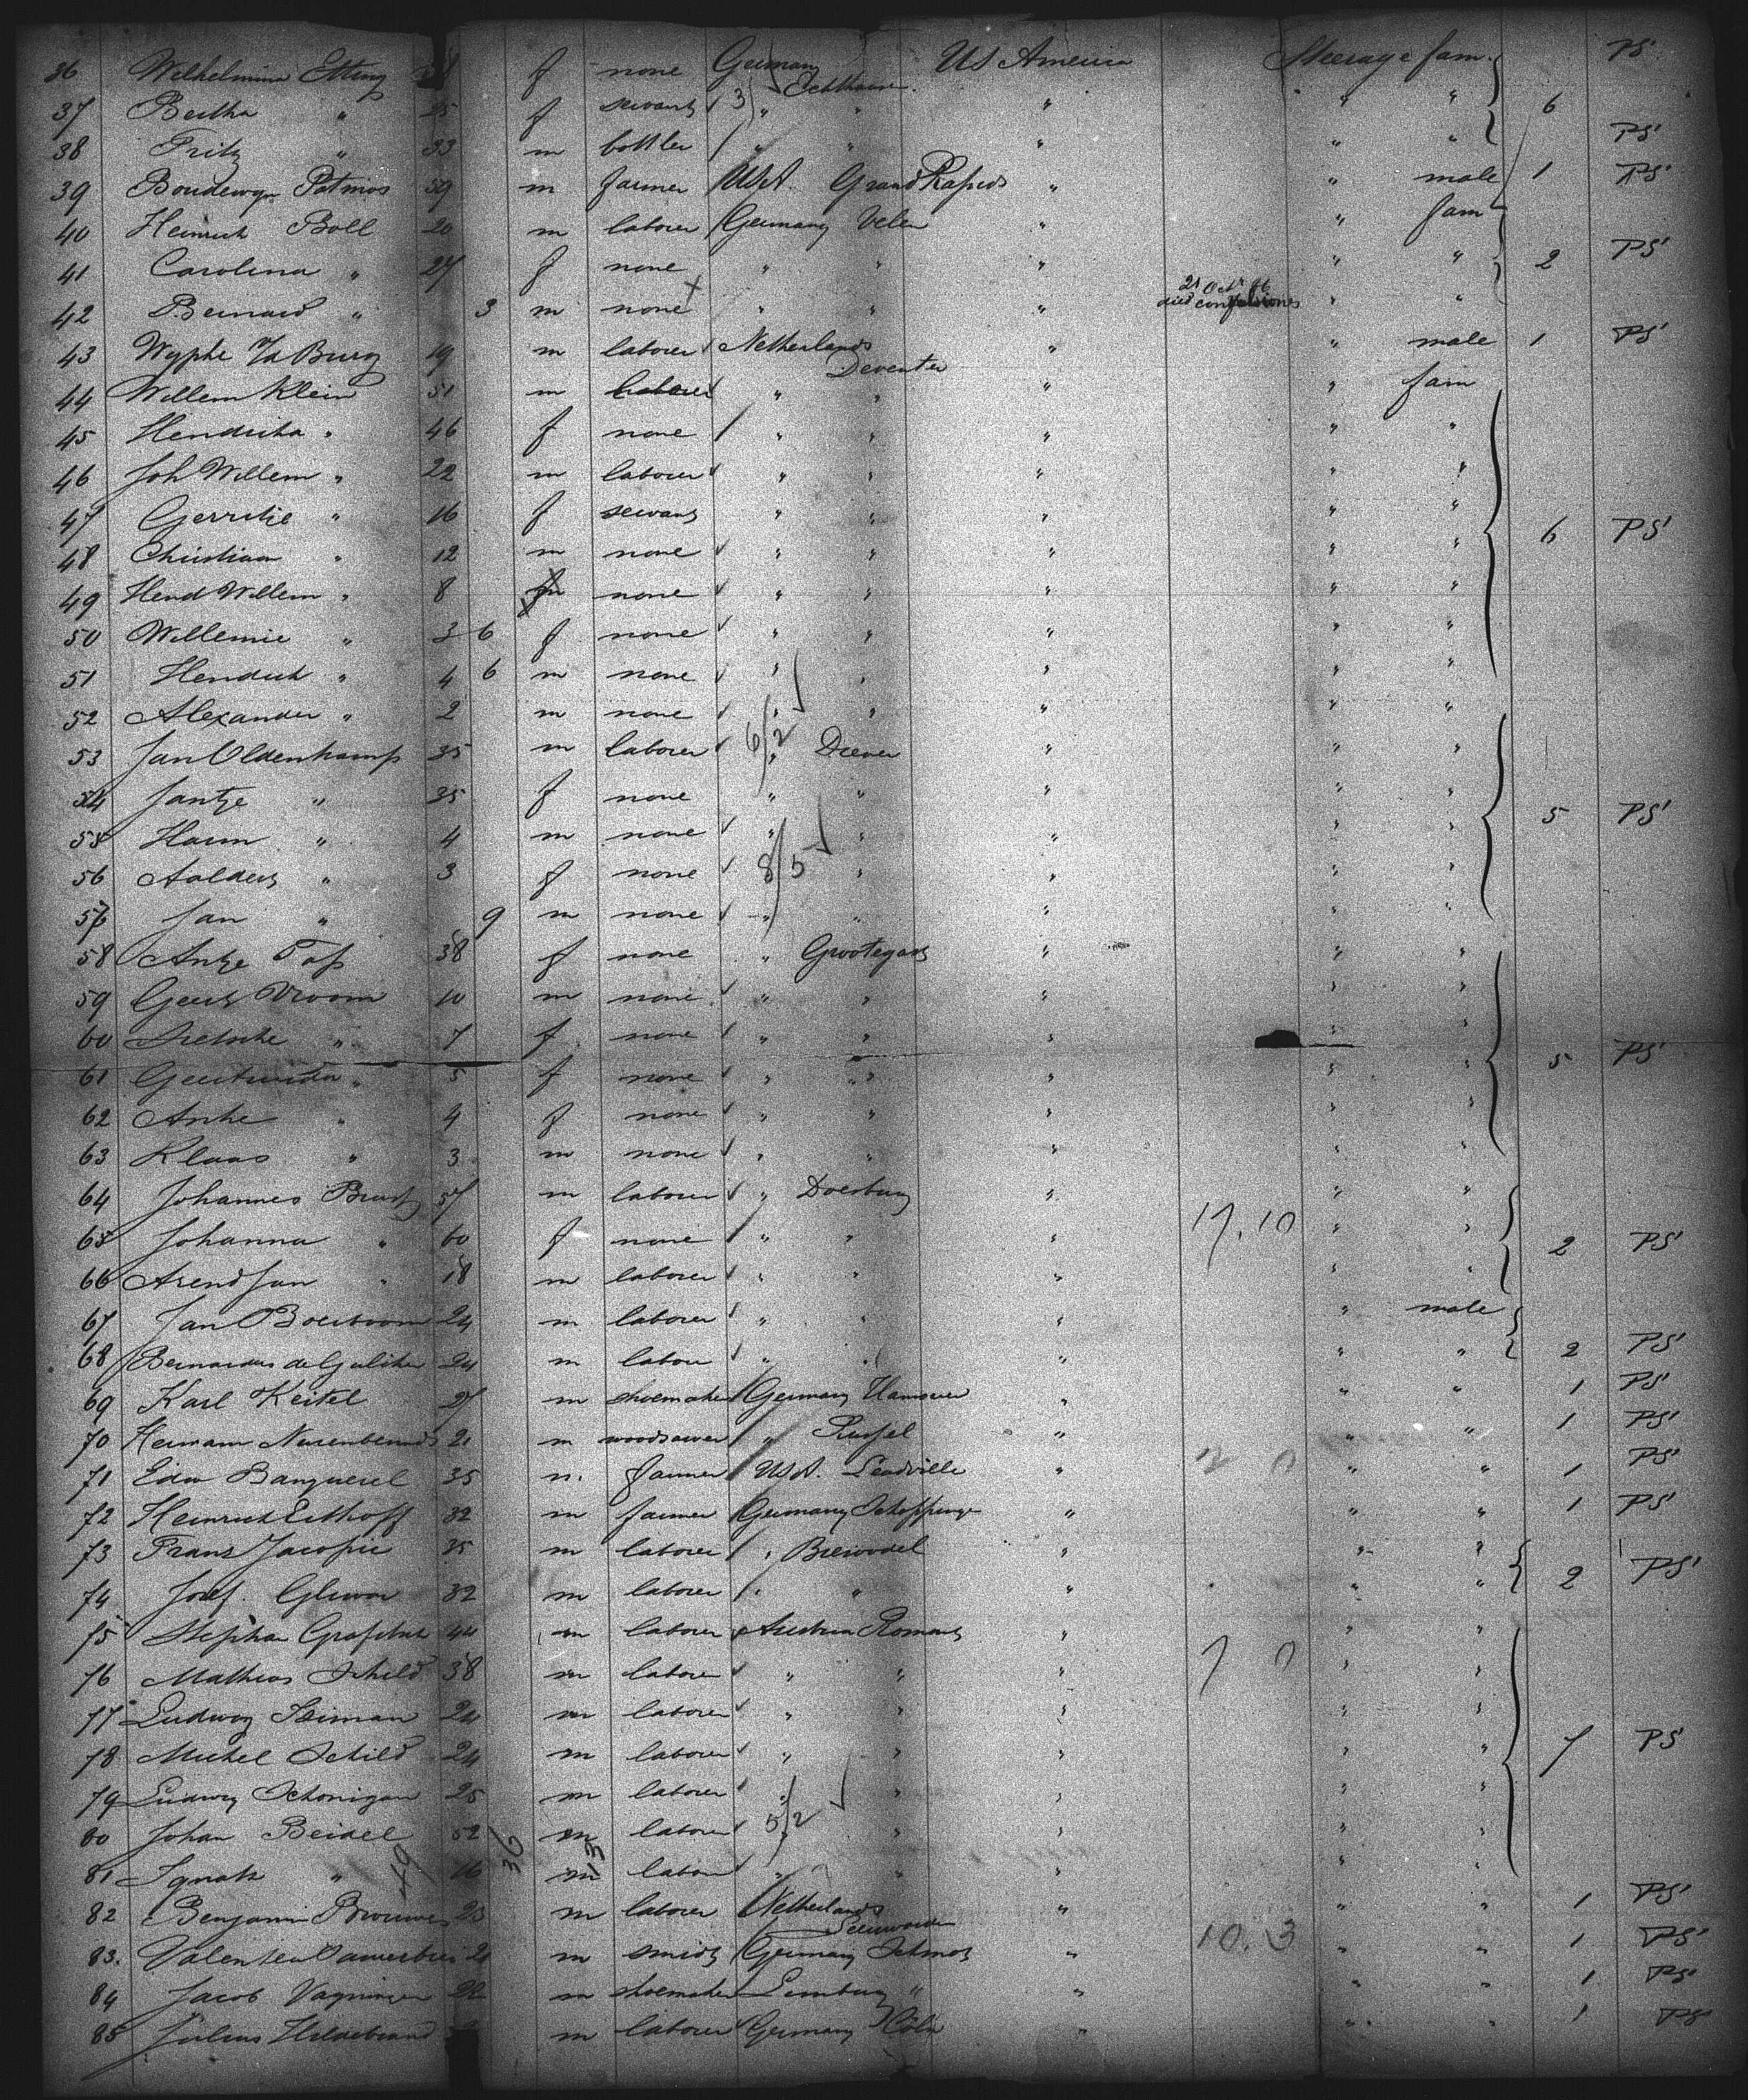 36 Wilhelmina Etting f none Germany US America Steerage fam. PS
37 Bertha " 25 f servant 3 " " " " " 6
38 Fritz " 33 m bottler " " " " " PS
39 Boudewyn Patmos 59 m farmer USA. Grand Rapids " " male 1 PS
40 Heinrich Boll 20 m laborer Germany Velen " " fam
41 Carolina " 27 f none " " " " " 2 PS
42 Bernard " 3 m none " " " 21 Oct died " "
43 Wypke Burg 19 m laborer Netherlands Deventer " " male 1 PS
44 Willem Klein 51 m laborer " " " " fam
45 Hendrika " 46 f none " " " " "
46 Joh Willem " 22 m laborer " " " " "
47 Gerritie " 16 f servant " " " " "
48 Christiaan " 12 m none " " " " " 6 PS
49 Hend Willem " 8 m none " " " " "
50 Willemie " 3 6 f none " " " " "
51 Hendrik " 4 6 m none " " " " "
52 Alexander " 2 m none " " " " "
53 Jan Oldenkamp 35 m laborer 6/2 " Diever " " "
54 Jantje " 35 f none " " " " "
55 Harm " 4 m none " " " " " 5 PS
56 Aalders " 3 f none 8/5 " " " "
57 Jan " 9 m none " " " " "
58 Antje Tap 38 f none " Grootegast " " "
59 Geert Vroom 10 m none " " " " "
60 " 7 f none " " " " "
61 Geertruida " 5 f none " " " " " 5 PS
62 Anke " 4 f none " " " " "
63 Klaas " 3 m none " " " " "
64 Johannes 57 m laborer " Doesburg " " "
65 Johanna " 60 f none " " " 17.10 " " 2 PS
66 Arend Jan " 18 m laborer " " " " "
67 Jan Boerboom 24 m laborer " " " " male
68 Bernardus de Guliker 24 m labore " " " " " 2 PS
69 Karl Keitel 27 m shoemaker Germany Hanover " " " 1 PS
70 Hermann 21 m woodsawer " " " " 1 PS
71 Edw Banguerel 35 m. farmer USA. Leadville " " " 1 PS
72 Heinrich Elthoff 32 m farmer Germany Schoppinge " " " 1 PS
73 Franz Jacopic 35 m laborer " " " "
74 Josef. 32 m laborer " " " " " 2 PS
75 Stephan 44 m laborer Austria " " "
76 Mathias Schild 38 m labore " " " " "
77 Ludwig 24 m laborer " " " " "
78 Michel Schild 24 m laborer " " " " " 7 PS
79 Ludwig Schonigan 25 m laborer " " " " "
80 Johan Beidel 52 m labore 5/2 " " " "
81 Ignatz " 49 16 36 m 13 labore " " " " "
82 Benjamin Brouwer 23 m laborer Netherlands Leeuwarden " " " 1 PS
83. Valentin 21 m smidt Germany " 10.3 " " 1 PS
84 Jacob 22 m shoemaker Limburg " " " " 1 PS
85 Julius Hildebrand m laborer Germany Cöln " " " 1 PS